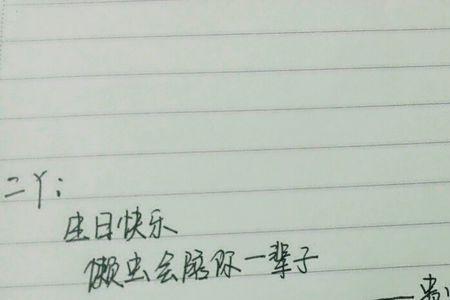 二丫：
生日快乐
懒虫会陪你一辈子